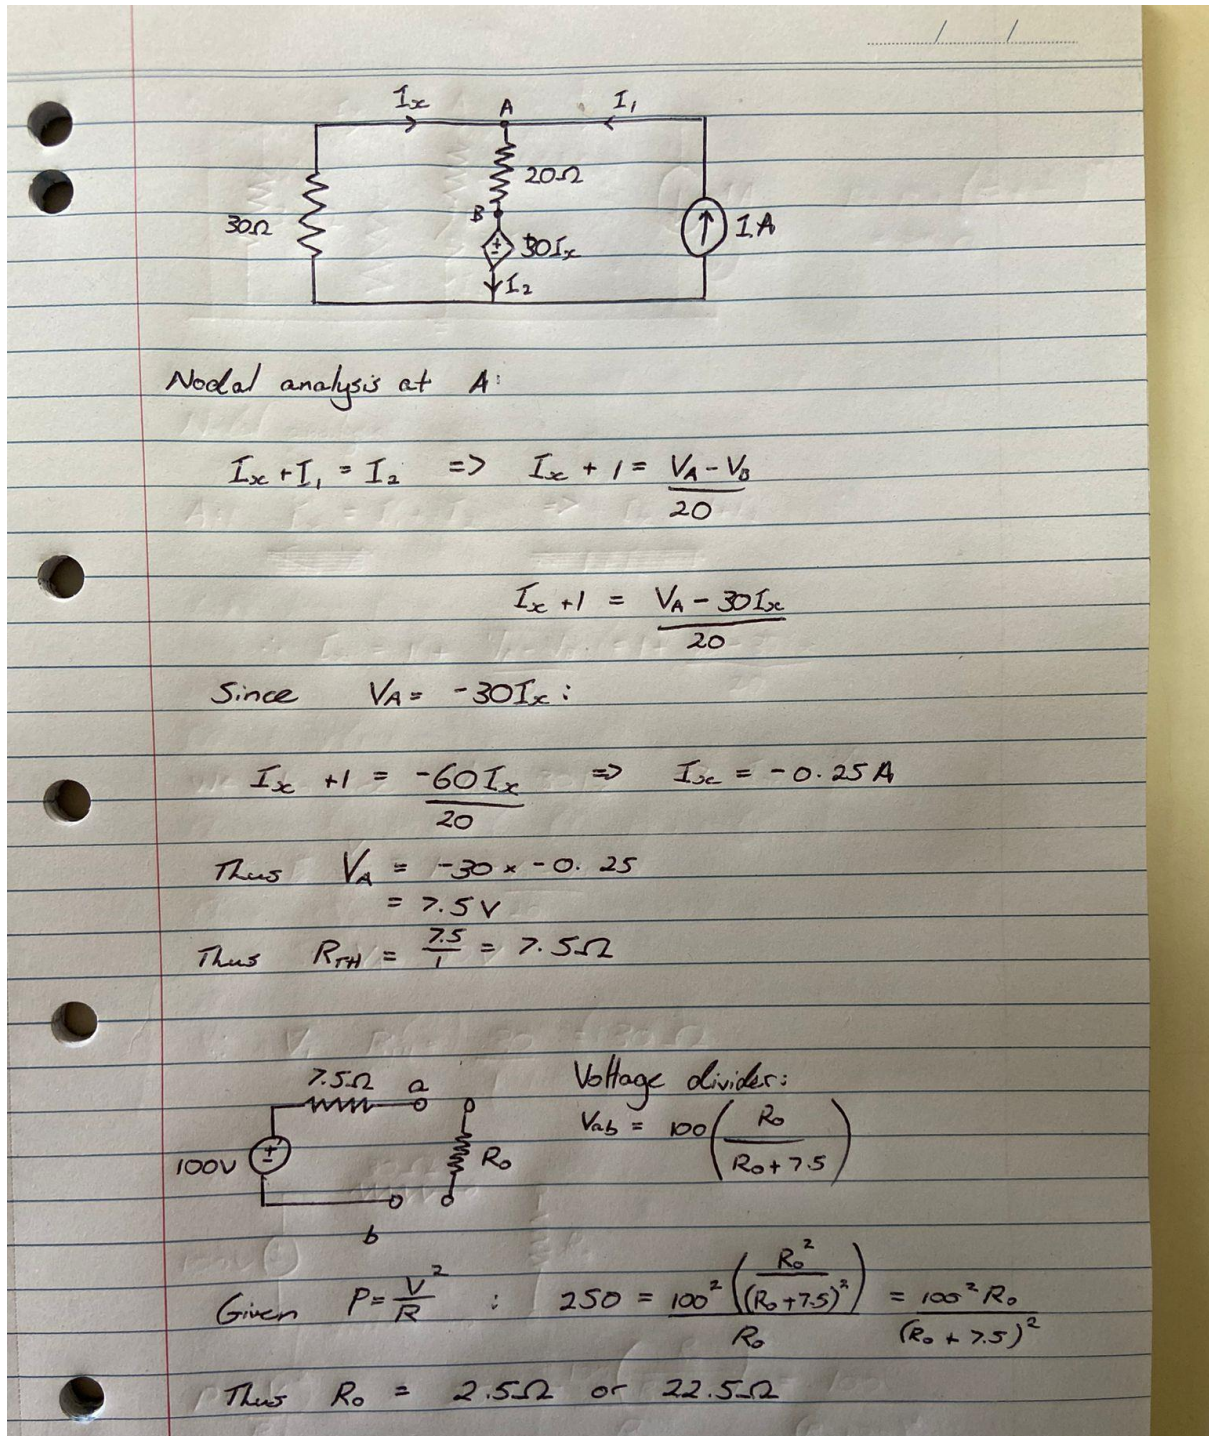 / /
Ix A I₁
20Ω
B
30Ω 30Ix 1A
I₂
Nodal analysis at A:
Ix + I₁ = I₂ => Ix + 1 = (VA - VB)/20
Ix + 1 = (VA - 30Ix)/20
Since VA = -30Ix:
Ix + 1 = -60Ix/20 => Ix = -0.25A
Thus VA = -30 x -0.25
= 7.5V
Thus RTH = 7.5/1 = 7.5Ω
7.5Ω a Voltage divider:
100V Ro Vab = 100(Ro/(Ro + 7.5))
b
Given P = V²/R : 250 = 100²(Ro²/(Ro + 7.5)²)/Ro = 100²Ro/(Ro + 7.5)²
Thus Ro = 2.5Ω or 22.5Ω